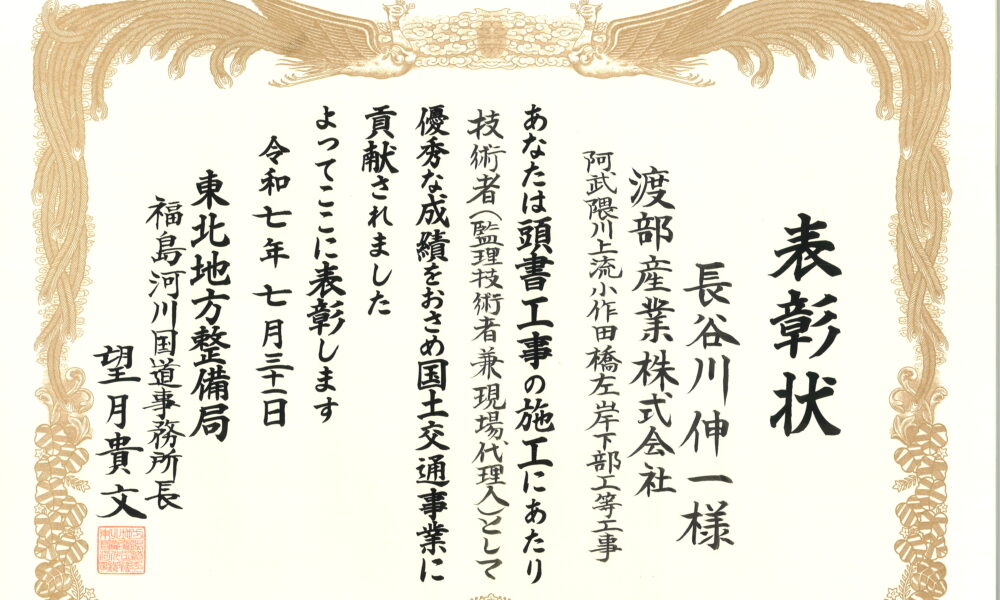 表彰状
阿武隈川上流小作田橋左岸下部工等工事
渡部産業株式会社
長谷川伸一様
あなたは頭書工事の施工にあたり
技術者(監理技術者兼現場代理人)として
優秀な成績をおさめ国土交通事業に
貢献されました
よってここに表彰します
令和七年七月三十一日
東北地方整備局
福島河川国道事務所長
望月貴文